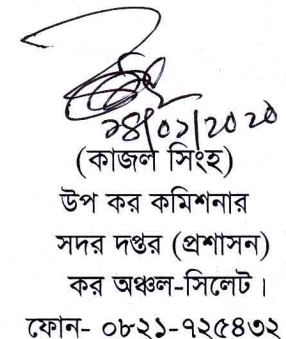 ২৪/০১/2020
(কাজল সিংহ)
উপ কর কমিশনার
সদর দপ্তর (প্রশাসন)
কর অঞ্চল-সিলেট।
ফোন- ০৮২১-৭২৫৪৩২